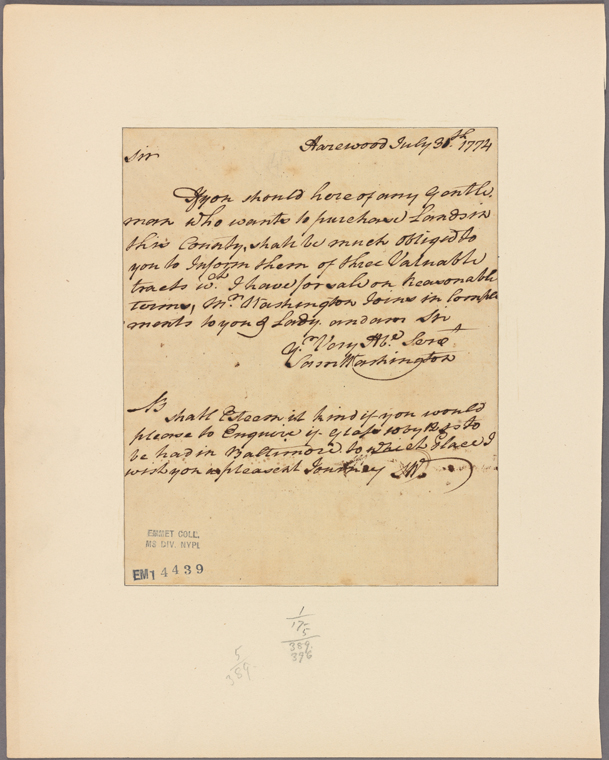 Harewood July 31th 1774
Sir
If you should here of any Gentle
man who wants to purchase Lands in
this County, shall be much obliged to
you to Inform them of three Valuable
tracts wch I have for sale on Reasonable
terms, Mrs Washington Joins in Compli
ments to you & Lady. and am Sir
Yr Very Hbe Servt
Saml Washington
NB
shall Esteem it kind if you would
please to Enquire if Glass 10 by 12 is to
be had in Baltimore to which Place I
wish you a pleasent Journey SW
EMMET COLL.
MS DIV. NYPL
EM14439
1
17
5
389
396
5
389